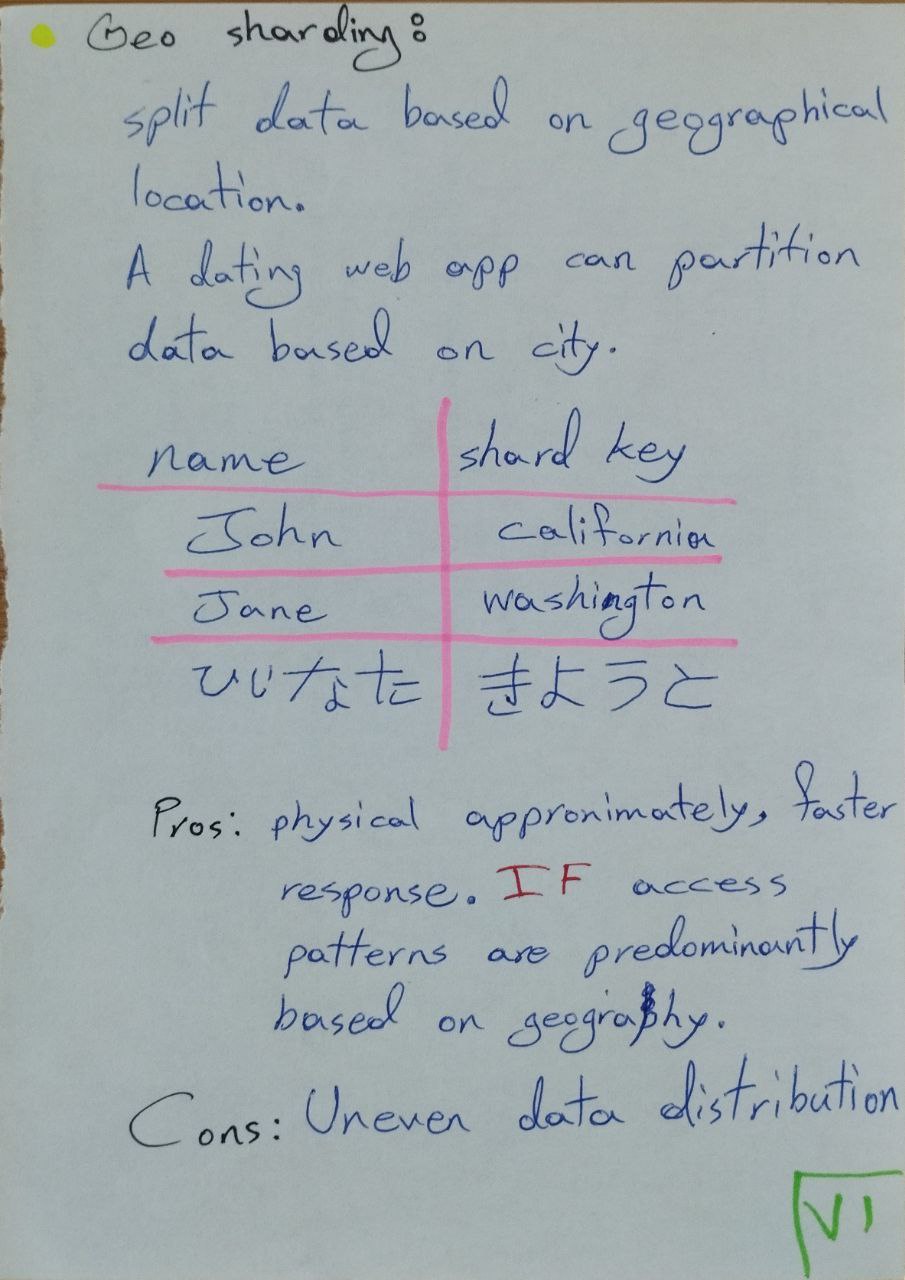 Geo sharding:
split data based on geographical
location.
A dating web app can partition
data based on city.
name shard key
John california
Jane washington
ひじなた きようと
Pros: physical appronimately, faster
response. IF access
patterns are predominantly
based on geography.
Cons: Uneven data distribution
VI